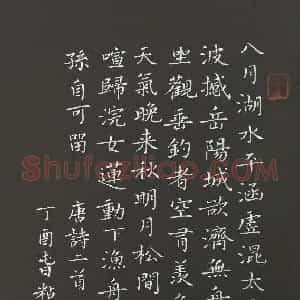 八月湖水平涵虛混太
波撼岳陽城欲濟無舟
坐觀垂釣者空有羡
天氣晚来秋明月松間
喧歸浣女蓮動下漁舟
孫自可留 唐詩二首
丁酉
Shufaziliao.COM